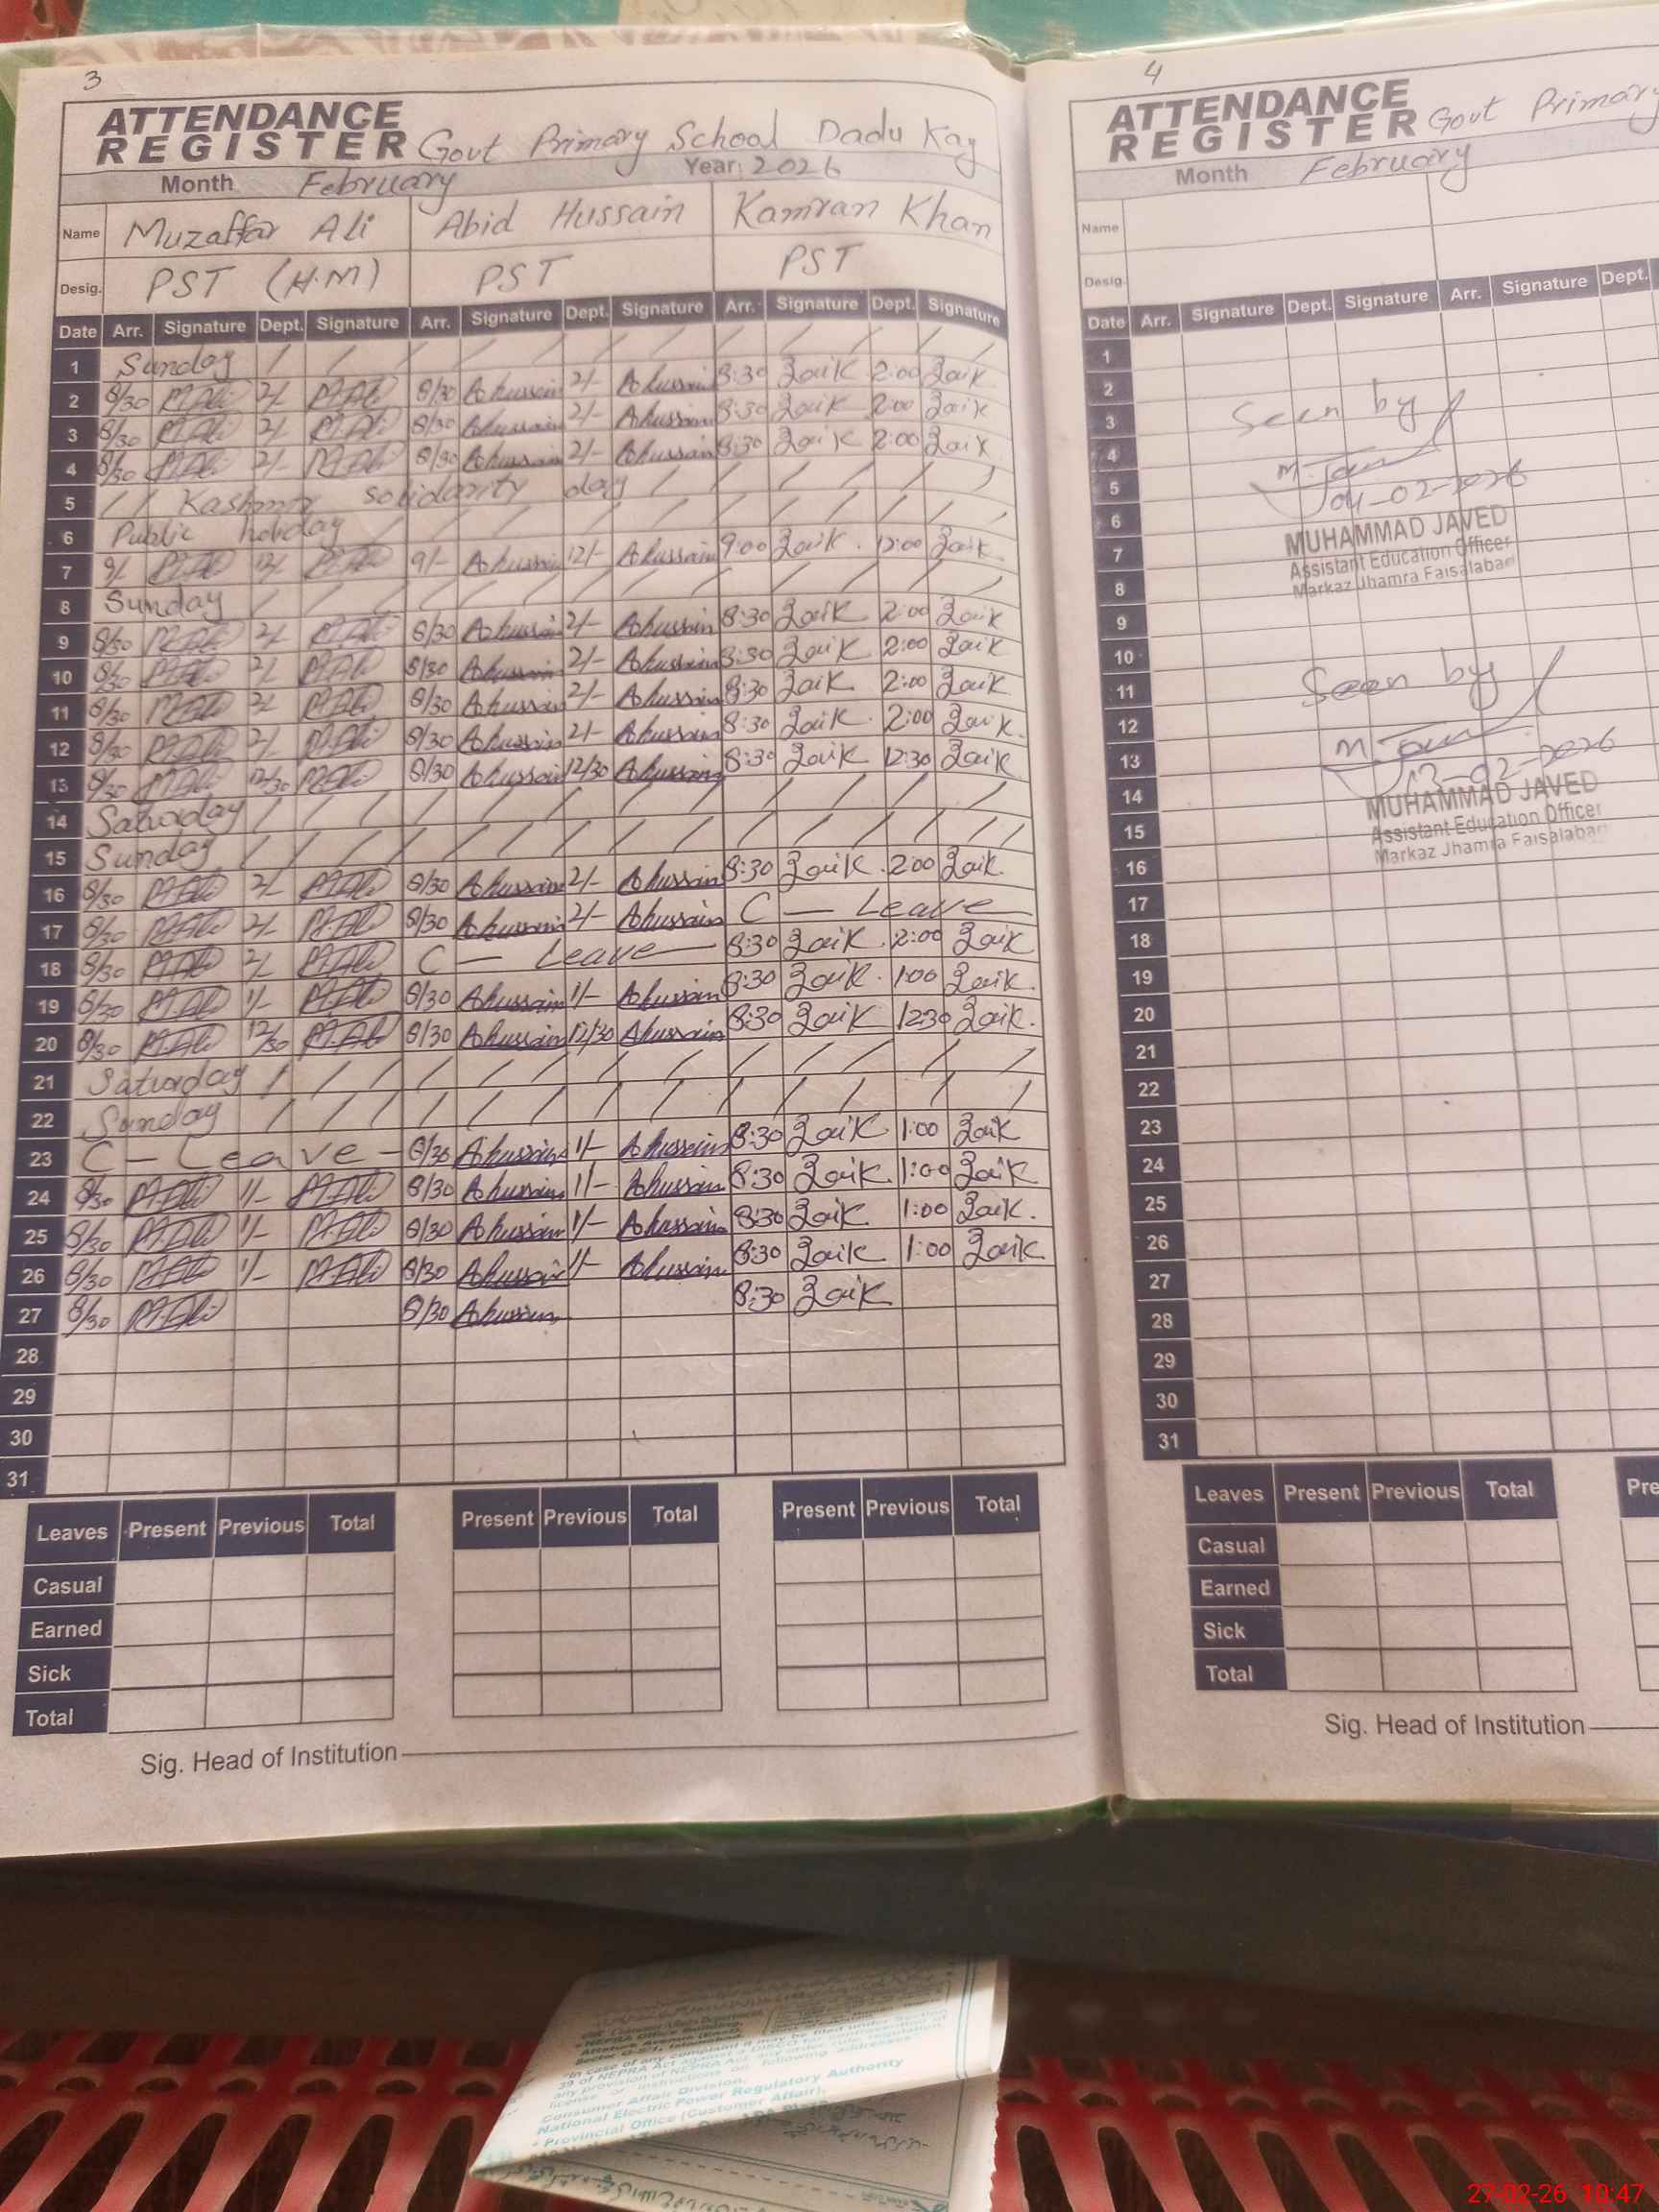 3
ATTENDANCE
REGISTER Govt Primary School Dadu Kay
Month February Year: 2026
Name Muzaffar Ali Abid Hussain Kamran Khan
Desig. PST (H.M) PST PST
Date Arr. Signature Dept. Signature Arr. Signature Dept. Signature Arr. Signature Dept. Signature
1 Sunday
2 8/30 M.Ali 2/- M.Ali 8/30 Ahussain 2/- Ahussain 8:30 2:00
3 8/30 M.Ali 2/- M.Ali 8/30 Ahussain 2/- Ahussain 8:30 2:00
4 8/30 M.Ali 2/- M.Ali 8/30 Ahussain 2/- Ahussain 8:30 2:00
5 Kashmir solidarity day
6 Public holiday
7 9/- M.Ali 12/- M.Ali 9/- Ahussain 12/- Ahussain 9:00 12:00
8 Sunday
9 8/30 M.Ali 2/- M.Ali 8/30 Ahussain 2/- Ahussain 8:30 2:00
10 8/30 M.Ali 2/- M.Ali 8/30 Ahussain 2/- Ahussain 8:30 2:00
11 8/30 M.Ali 2/- M.Ali 8/30 Ahussain 2/- Ahussain 8:30 2:00
12 8/30 M.Ali 2/- M.Ali 8/30 Ahussain 2/- Ahussain 8:30 2:00
13 8/30 M.Ali 12/30 M.Ali 8/30 Ahussain 12/30 Ahussain 8:30 12:30
14 Saturday
15 Sunday
16 8/30 M.Ali 2/- M.Ali 8/30 Ahussain 2/- Ahussain 8:30 2:00
17 8/30 M.Ali 2/- M.Ali 8/30 Ahussain 2/- Ahussain C — Leave
18 8/30 M.Ali 2/- M.Ali C — Leave 8:30 2:00
19 8/30 M.Ali 1/- M.Ali 8/30 Ahussain 1/- Ahussain 8:30 1:00
20 8/30 M.Ali 12/30 M.Ali 8/30 Ahussain 12/30 Ahussain 8:30 12:30
21 Saturday
22 Sunday
23 C - Leave - 8/30 Ahussain 1/- Ahussain 8:30 1:00
24 8/30 M.Ali 1/- M.Ali 8/30 Ahussain 1/- Ahussain 8:30 1:00
25 8/30 M.Ali 1/- M.Ali 8/30 Ahussain 1/- Ahussain 8:30 1:00
26 8/30 M.Ali 1/- M.Ali 8/30 Ahussain 1/- Ahussain 8:30 1:00
27 8/30 M.Ali 8/30 Ahussain 8:30
28
29
30
31
Leaves Present Previous Total Present Previous Total Present Previous Total
Casual
Earned
Sick
Total
Sig. Head of Institution
4
ATTENDANCE
REGISTER Govt Primary
Month February
Name
Desig.
Date Arr. Signature Dept. Signature Arr. Signature Dept.
1
2
3 Seen by
4
5 04-02-2026
6 MUHAMMAD JAVED
7 Assistant Education Officer
8 Markaz Jhamra Faisalabad
9
10
11 Seen by
12
13 13-02-2026
14 MUHAMMAD JAVED
15 Assistant Education Officer
16 Markaz Jhamra Faisalabad
17
18
19
20
21
22
23
24
25
26
27
28
29
30
31
Leaves Present Previous Total Pre
Casual
Earned
Sick
Total
Sig. Head of Institution
In case of any complaint
Consumer Affairs Division,
National Electric Power Regulatory Authority
• Provincial Office (Consumer Affair),
27-02-26 10:47